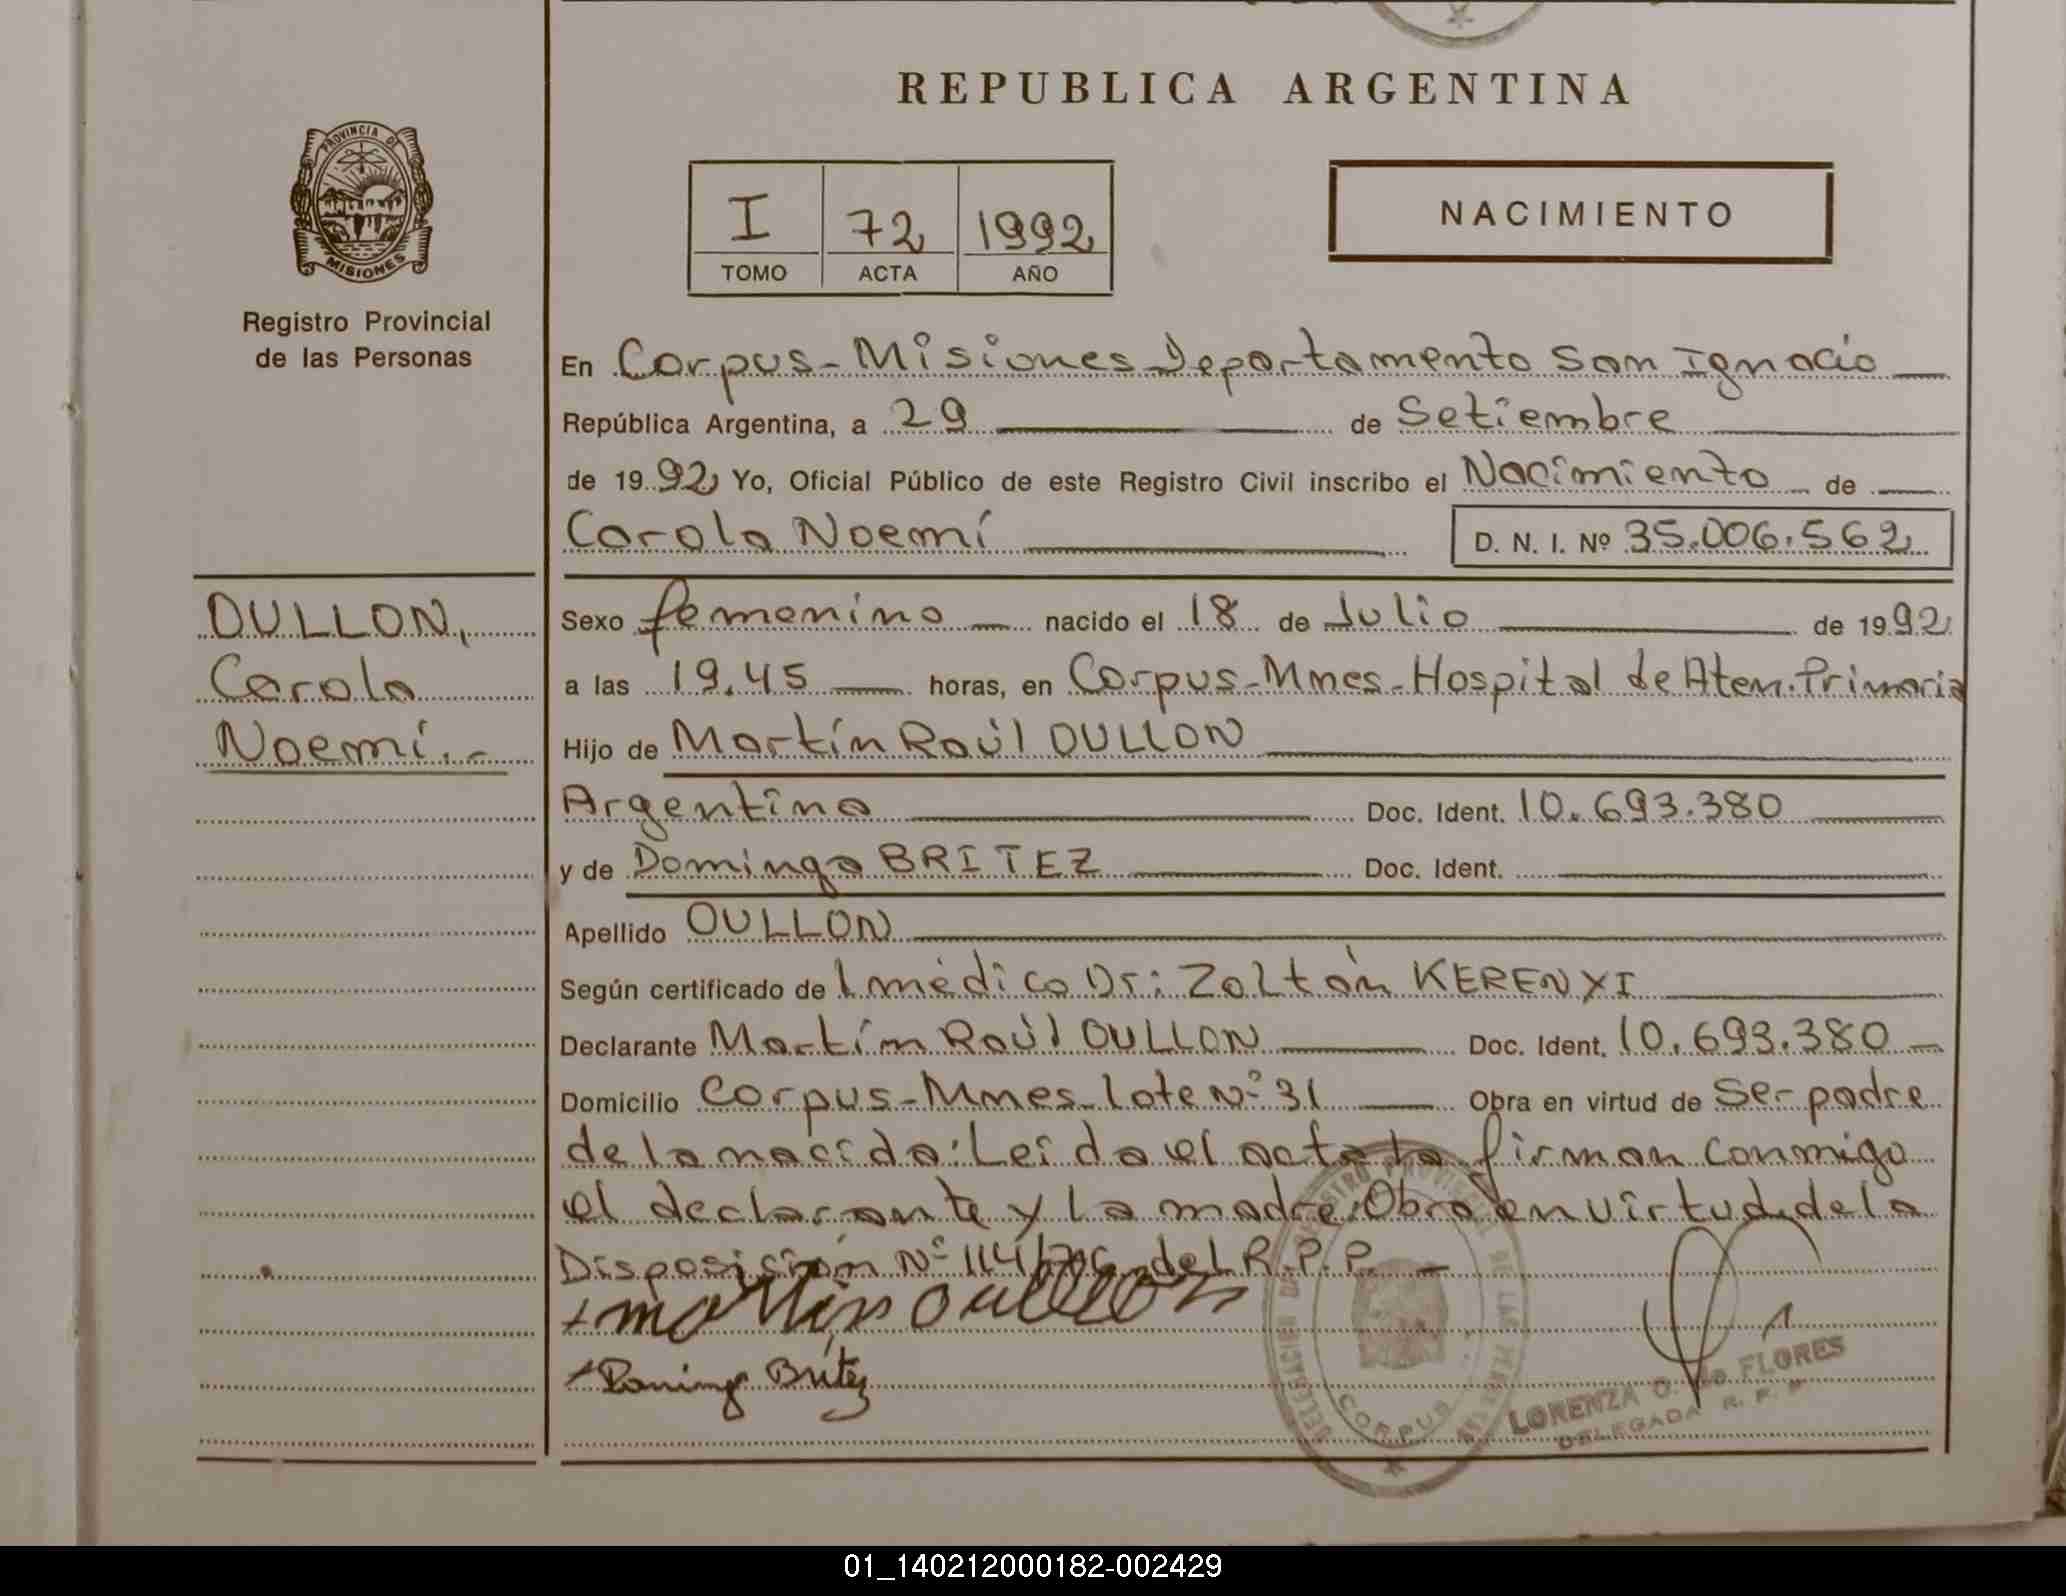 REPUBLICA ARGENTINA
PROVINCIA DE
MISIONES
Registro Provincial
de las Personas
I 72 1992
TOMO ACTA AÑO
NACIMIENTO
En Corpus-Misiones Departamento San Ignacio
República Argentina, a 29 de Setiembre
de 1992 Yo, Oficial Público de este Registro Civil inscribo el Nacimiento de
Carola Noemí D. N. I. Nº 35.006.562
OULLON,
Carola
Noemí.-
Sexo femenino nacido el 18 de Julio de 1992
a las 19.45 horas, en Corpus-Mnes-Hospital de Aten. Primaria
Hijo de Martín Raúl OULLON
Argentino Doc. Ident. 10.693.380
y de Dominga BRITEZ Doc. Ident.
Apellido OULLON
Según certificado del médico Dr: Zoltán KERENYI
Declarante Martín Raúl OULLON Doc. Ident. 10.693.380
Domicilio Corpus-Mnes-lote Nº 31 Obra en virtud de ser padre
de la nacida: Leída el acta la firman conmigo
el declarante y la madre. Obra en virtud de la
Disposición Nº 114/ del R.P.P.
martin oullon
Britez
CORPUS
LORENZA O. de FLORES
DELEGADA R. P. P.
01_140212000182-002429